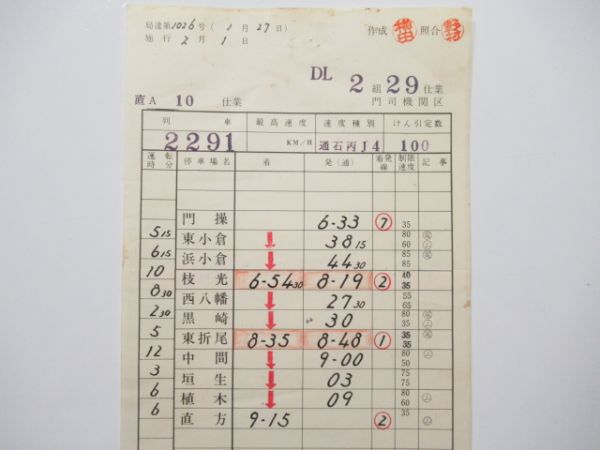 局達第1026号(1月27日)
施行 2月1日
作成 照合
DL 2組29仕業
直A 10 仕業 門司機関区
列車 最高速度 速度種別 けん引定数
2291 KM/H 通石丙J4 100
運転時分 停車場名 着 発(通) 着発線 制限速度 記事
門操 6-33 7 35
5 15 80 60
東小倉 ↓ 38 15
6 15 85 85
浜小倉 ↓ 44 30
10 40 35
枝光 6-54 30 8-19 2
8 30 55 65
西八幡 ↓ 27 30
2 30 80 35
黒崎 ↓ 30
5 35 35
東折尾 8-35 8-48 1
12 80 50
中間 ↓ 9-00
3 75 75
垣生 ↓ 03
6 80 60
植木 ↓ 09
6 35
直方 9-15 2